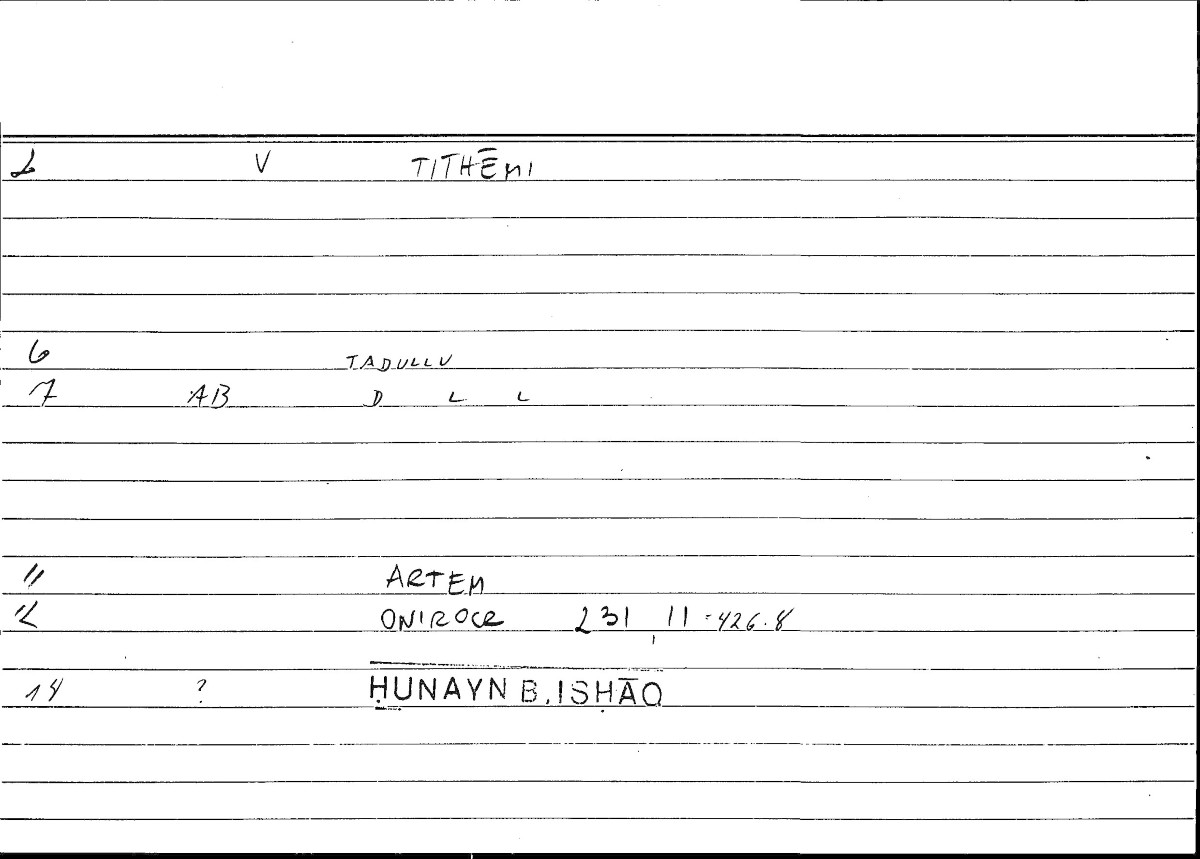 2 V TITHĒMI
6 TADULLU
7 AB D L L
11 ARTEM
12 ONIROCR 231 11 = 426.8
14 ? ḤUNAYN B. ISḤĀQ